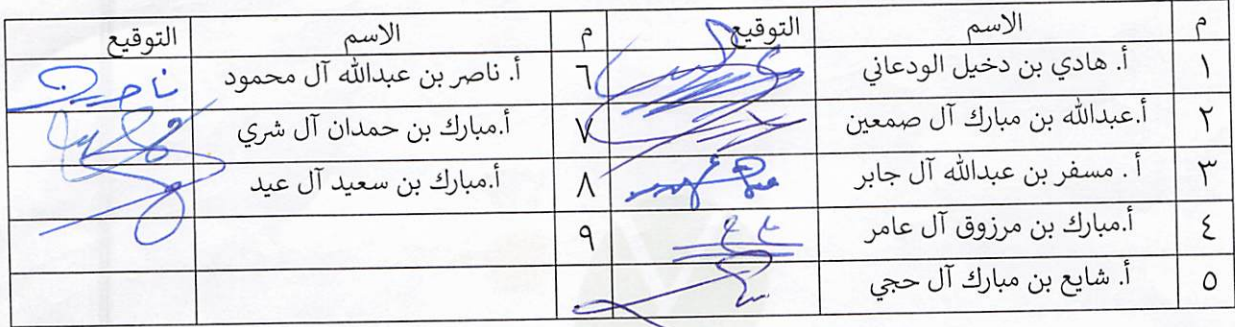 م الاسم التوقيع م الاسم التوقيع
١ أ. هادي بن دخيل الودعاني ٦ أ. ناصر بن عبدالله آل محمود
٢ أ.عبدالله بن مبارك آل صمعين ٧ أ.مبارك بن حمدان آل شري
٣ أ. مسفر بن عبدالله آل جابر ٨ أ.مبارك بن سعيد آل عيد
٤ أ.مبارك بن مرزوق آل عامر ٩
٥ أ. شايع بن مبارك آل حجي